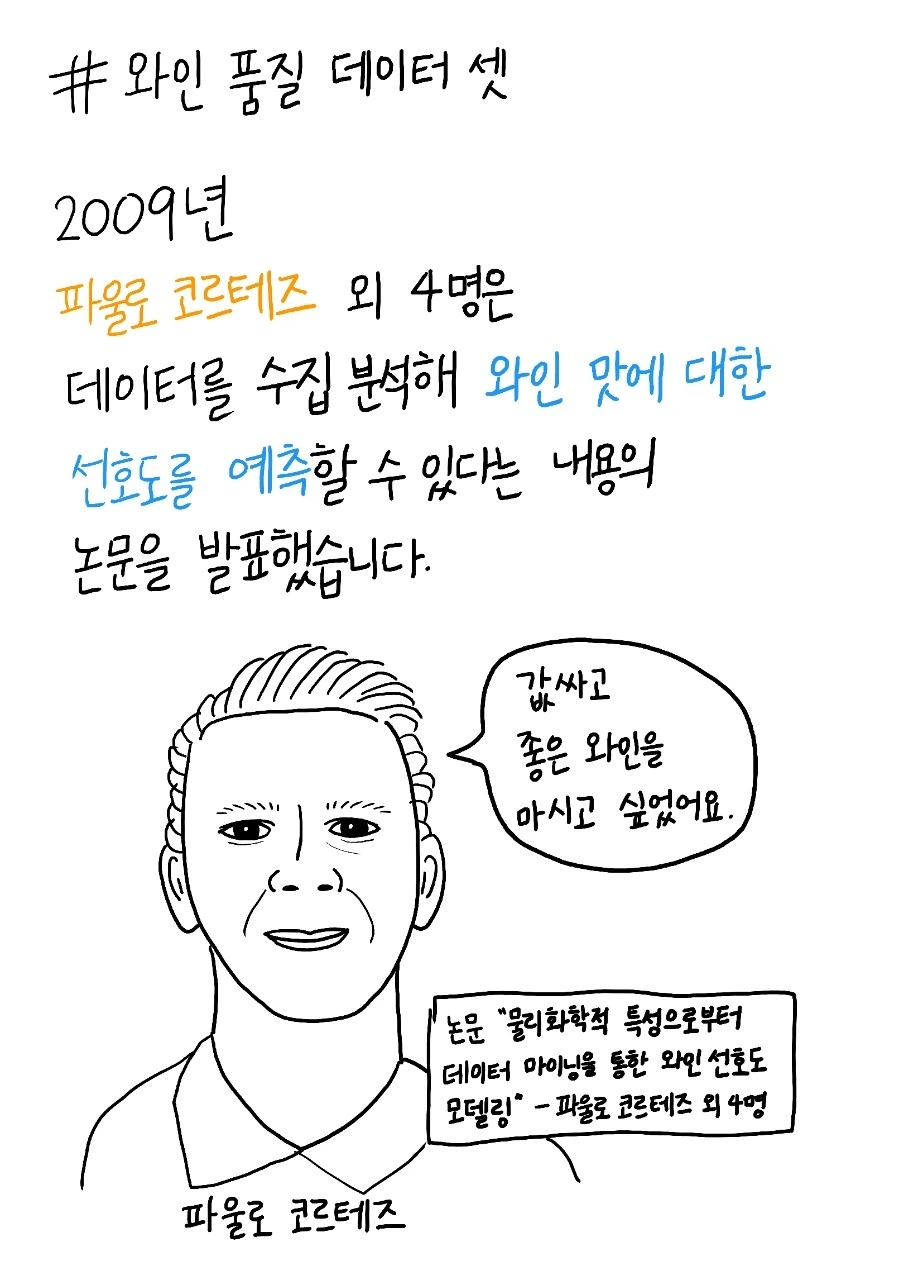 # 와인 품질 데이터 셋
2009년
파울로 코르테즈 외 4명은
데이터를 수집 분석해 와인 맛에 대한
선호도를 예측할 수 있다는 내용의
논문을 발표했습니다.
값싸고
좋은 와인을
마시고 싶었어요.
논문 "물리화학적 특성으로부터
데이터 마이닝을 통한 와인 선호도
모델링" - 파울로 코르테즈 외 4명
파울로 코르테즈